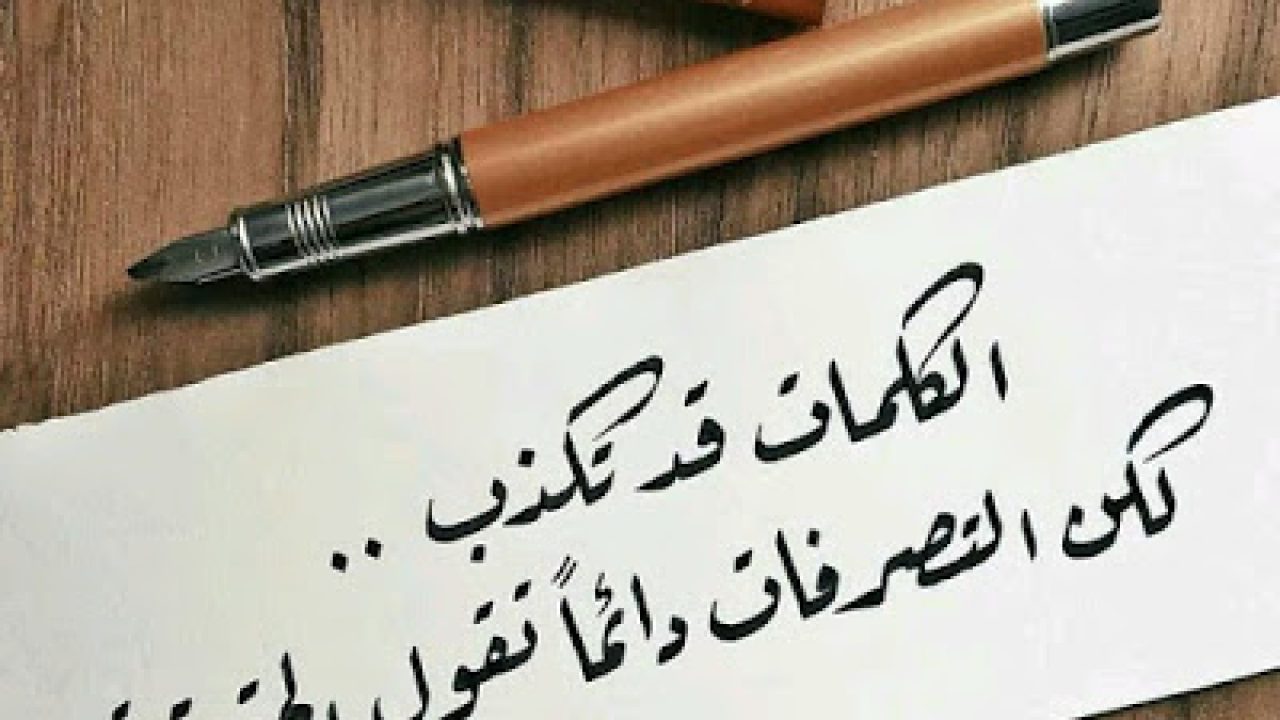 الكلمات قد تكذب ..
لكن التصرفات دائماً تقول